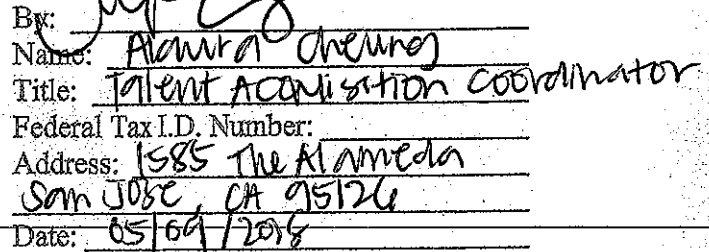 By:
Name: Alaura Cheung
Title: Talent Acquisition Coordinator
Federal Tax I.D. Number:
Address: 1585 The Alameda
San Jose, CA 95126
Date: 05/09/2018